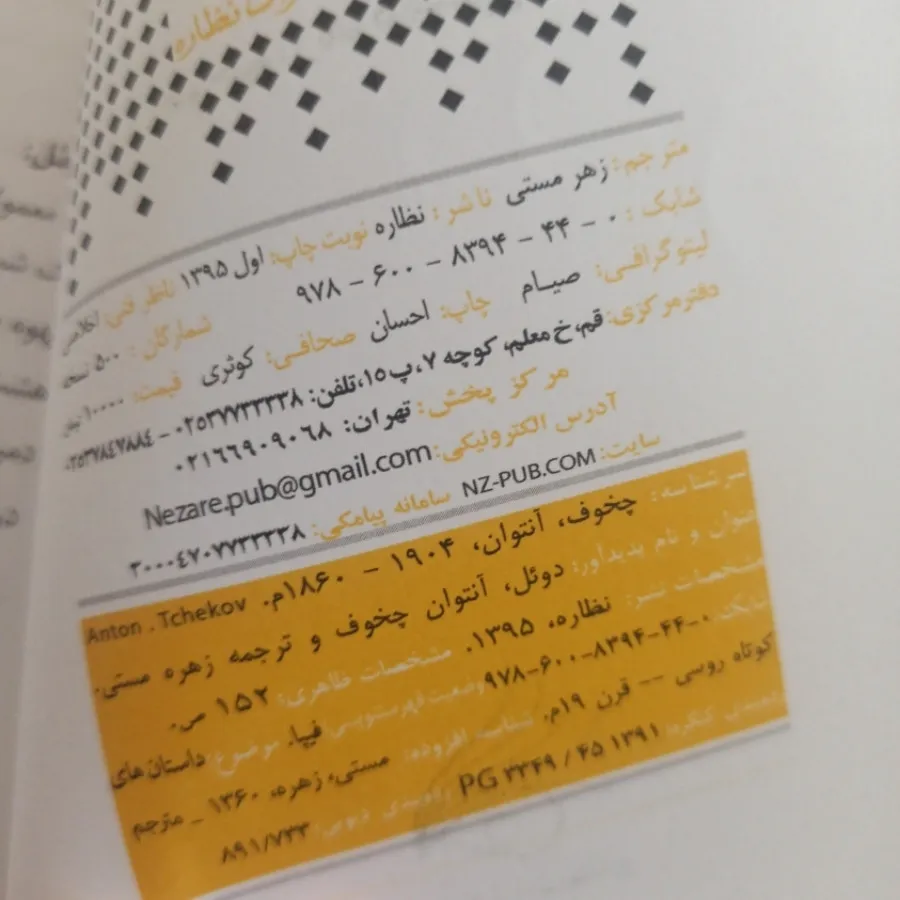 نظاره
مترجم: زهر مستی ناشر: نظاره نوبت چاپ: اول ۱۳۹۵ ناظر فنی:
شابک: ۰ – ۴۴ – ۸۳۹۴ – ۶۰۰ – ۹۷۸
لیتوگرافی: صیام چاپ: احسان صحافی: کوثری شمارگان: ۵۰۰ نسخه
قیمت: ۱۰۰۰۰
دفترمرکزی: قم، خ معلم، کوچه ۷، پ ۱۵، تلفن: ۰۲۵۳۷۷۳۳۳۳۸ – ۰۲۵۳۷۸٤۷۸۸٤
مرکز پخش: تهران: ۰۲۱۶۶۹۰۹۰۶۸
آدرس الکترونیکی: Nezare.pub@gmail.com
سایت: NZ-PUB.COM سامانه پیامکی: ۳۰۰۰٤۷۰۷۷۳۳۳۳۸
سرشناسه: چخوف، آنتوان، ۱۹۰۴ – ۱۸۶۰م. Anton . Tchekov
عنوان و نام پدیدآور: دوئل، آنتوان چخوف و ترجمه زهره مستی.
مشخصات نشر: نظاره، ۱۳۹۵. مشخصات ظاهری: ۱۵۲ ص.
شابک: ۰-۴۴-۸۳۹۴-۶۰۰-۹۷۸ وضعیت فهرستنویسی: فیپا. موضوع: داستان های
کوتاه روسی -- قرن ۱۹م. شناسه افزوده: مستی، زهره، ۱۳۶۰ _ مترجم
رده‌بندی کنگره: PG ۳۳۴۹ / ۴۵ ۱۳۹۱ رده‌بندی دیویی: ۸۹۱/۷۳۳